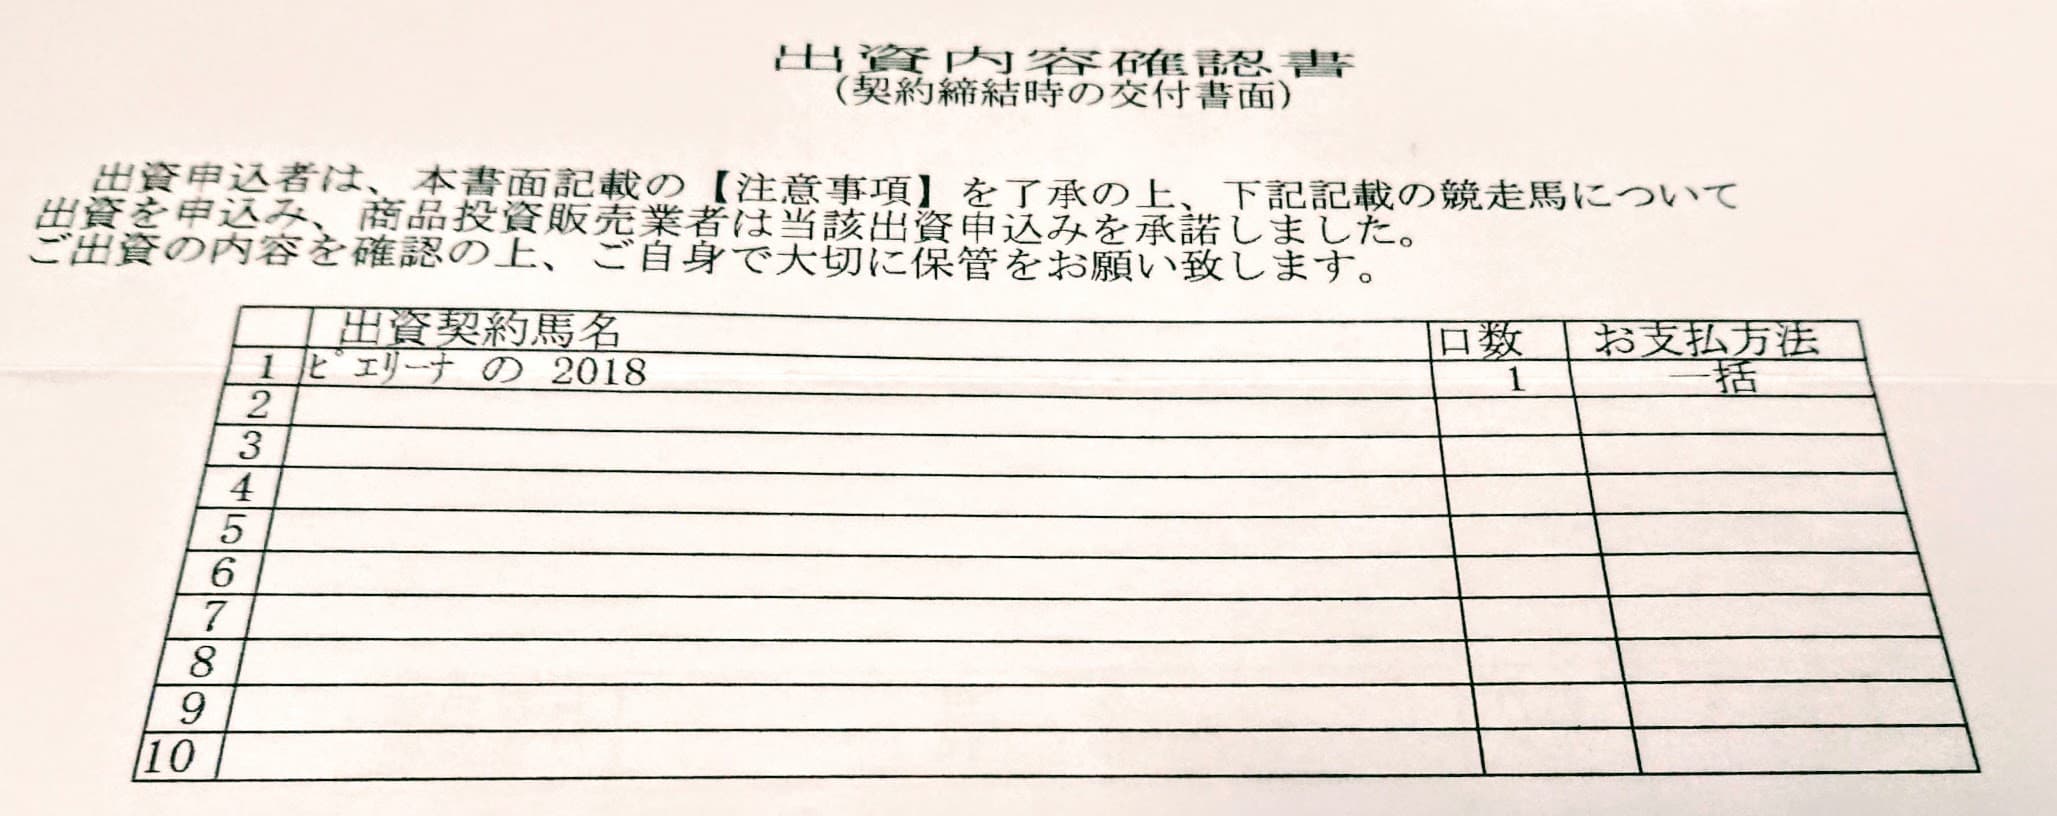 出資内容確認書
(契約締結時の交付書面)
出資申込者は、本書面記載の【注意事項】を了承の上、下記記載の競走馬について
出資を申込み、商品投資販売業者は当該出資申込みを承諾しました。
ご出資の内容を確認の上、ご自身で大切に保管をお願い致します。
出資契約馬名 口数 お支払方法
1 ﾋﾟｴﾘｰﾅ の 2018 1 一括
2
3
4
5
6
7
8
9
10